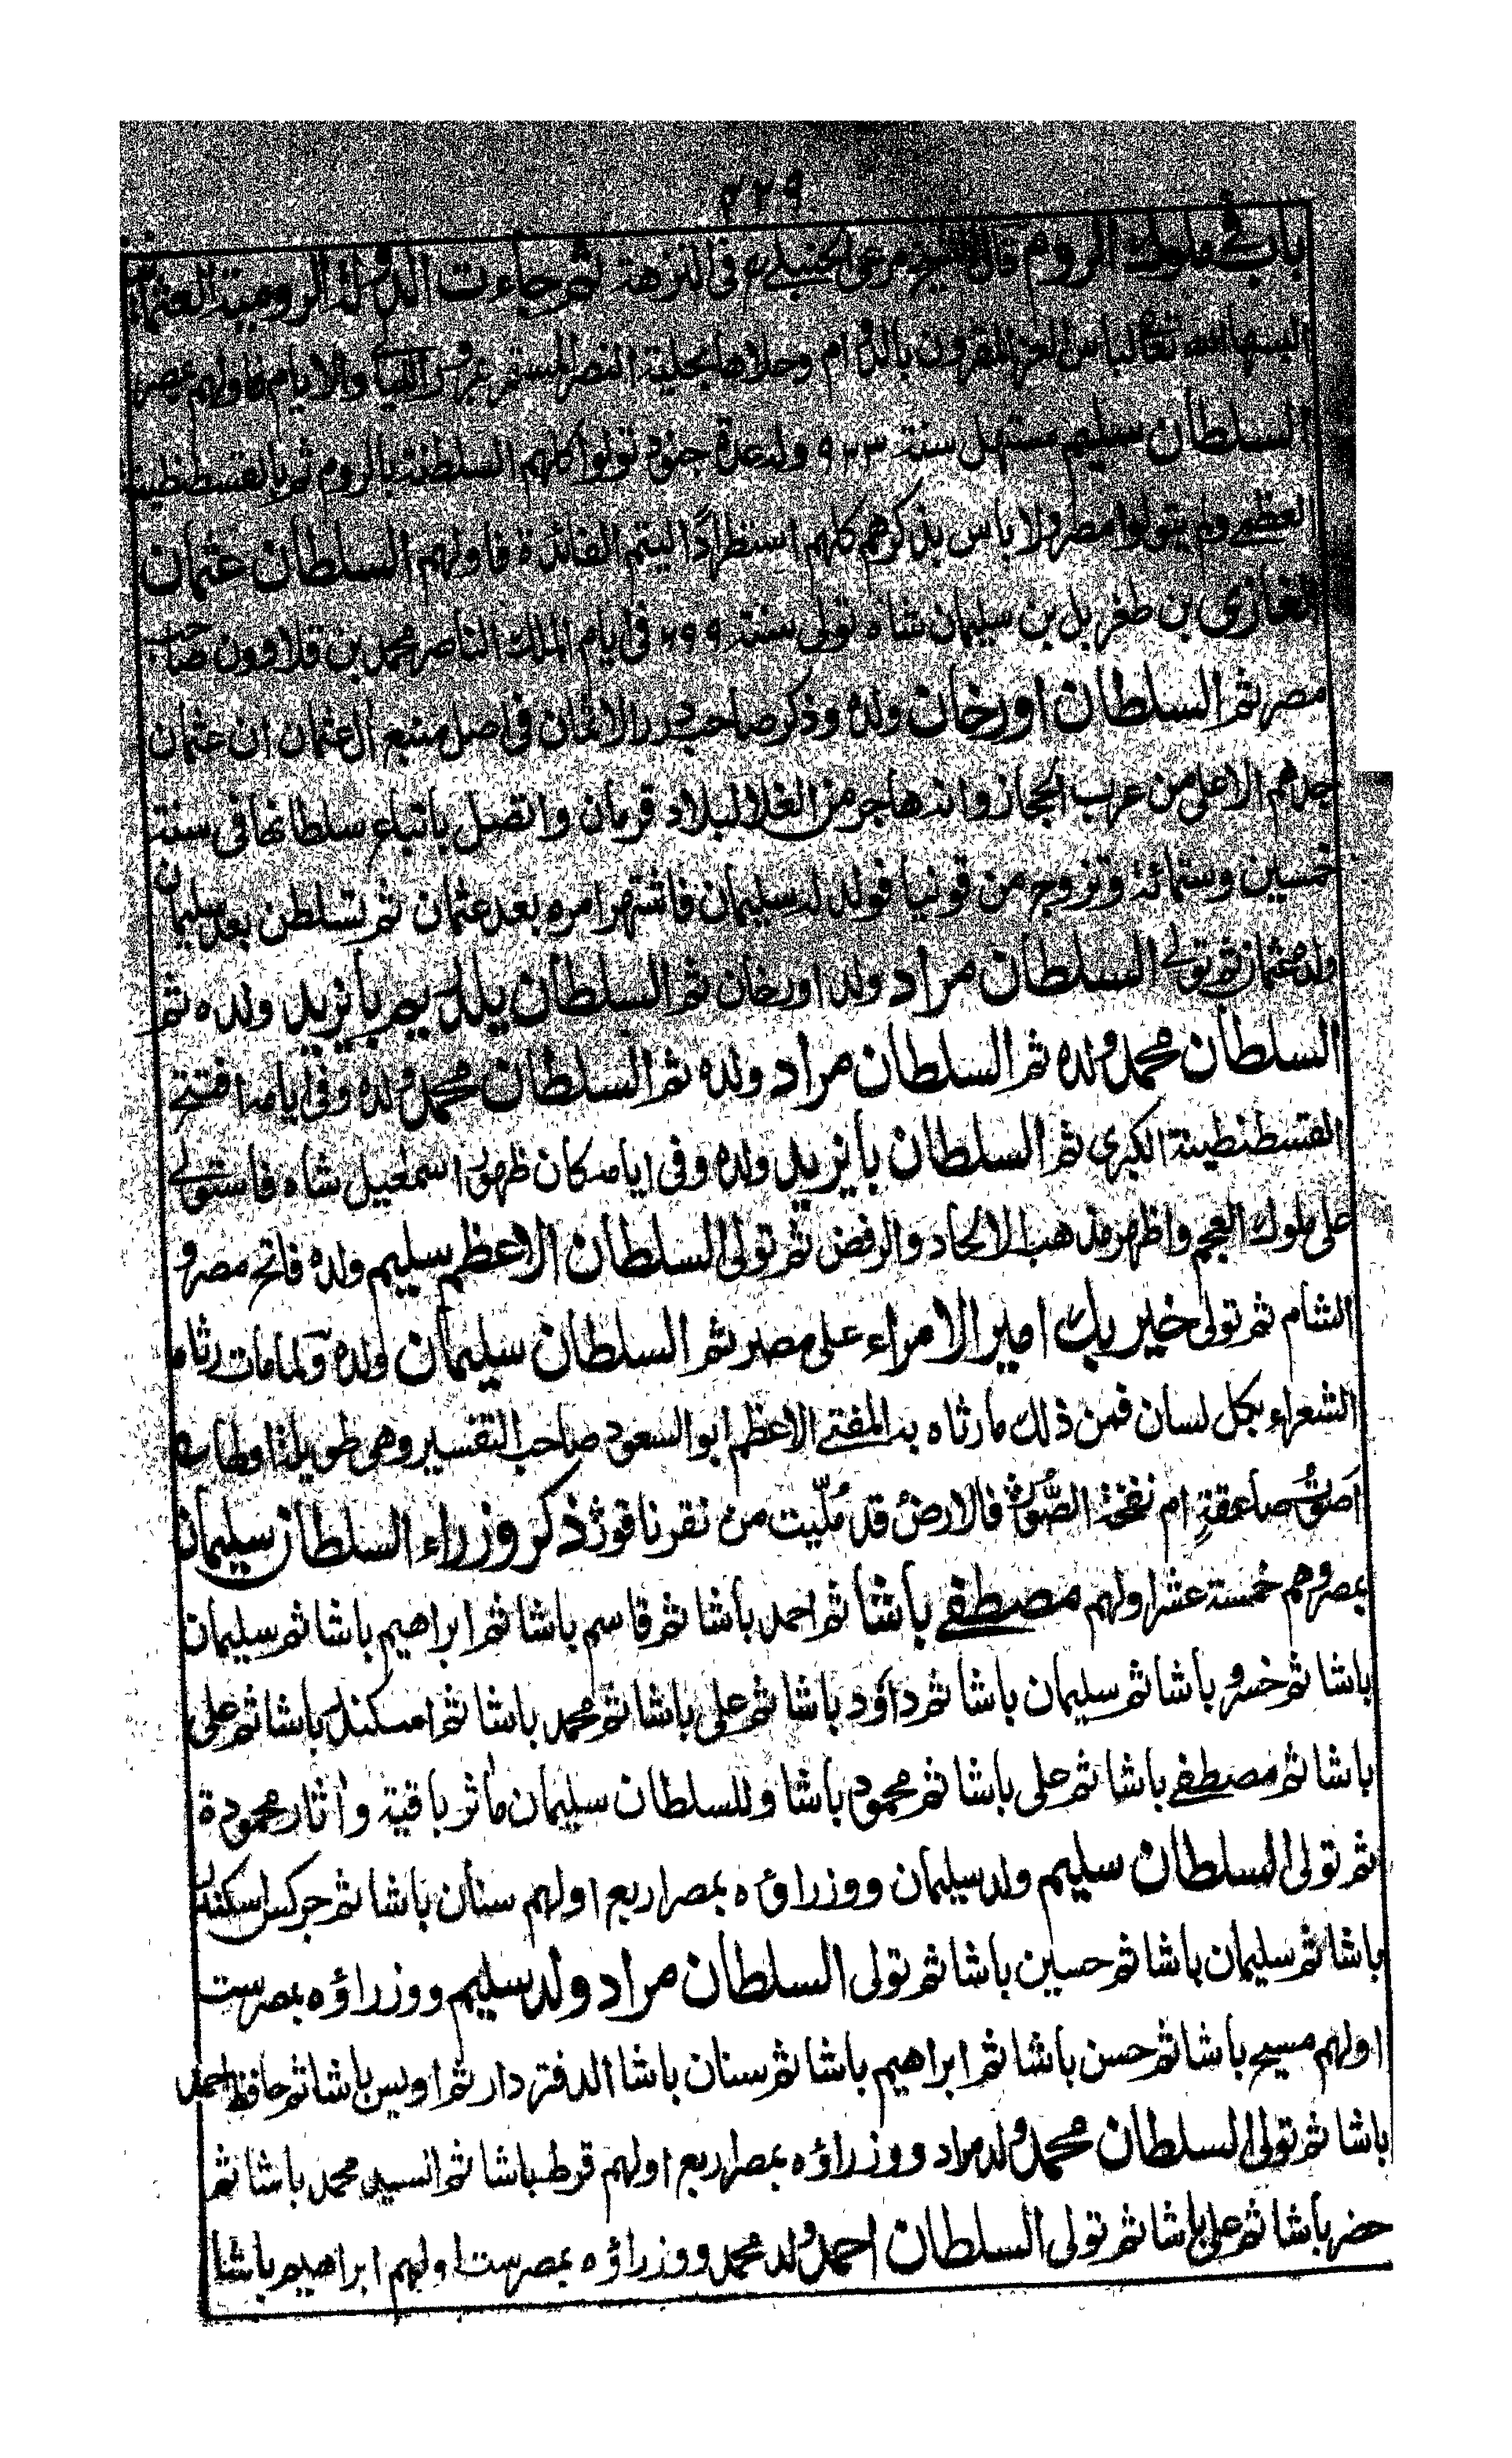 ٣٢٩
باب في ملوك الروم قال الشيخ مرعي الحنبلي في النزهة ثم جاءت الدولة الرومية العثمانية
البسها الله تعالى لباس العز المقرون بالدوام وحلاها بحلية النصر المستمر على مر الليالي والايام فاولهم بمصر
السلطان سليم مستهل سنة ٩٢٣ وله عدة جدود تولوا كلهم السلطنة بالروم ثم بالقسطنطينية
العظمى ولم يتولوا مصر ولا باس بذكرهم كلهم استطرادًا ليتم الفائدة فاولهم السلطان عثمان
الغازي بن طغربل بن سليمان شاه تولى سنة ٦٩٩ في ايام الملك الناصر محمد بن قلاوون صاحب
مصر ثم السلطان اورخان ولده وذكر صاحب درر الاثمان في اصل منبع ال عثمان ان عثمان
جدهم الاعلى من عرب الحجاز وانه هاجر من الغلا لبلاد قرمان واتصل باتباع سلطانها في سنة
خمسين وستمائة وتزوج من قونيا فولد له سليمان فاشتهر امره بعد عثمان ثم تسلطن بعد سليمان
ولده عثمان ثم تولى السلطان مراد ولد اورخان ثم السلطان يلديم بايزيد ولده ثم
السلطان محمد ولده ثم السلطان مراد ولده ثم السلطان محمد ولده وفي ايامه افتتح
القسطنطينة الكبرى ثم السلطان بايزيد ولده وفي ايامه كان ظهور اسمعيل شاه فاستولى
على ملوك العجم واظهر مذهب الالحاد والرفض ثم تولى السلطان الاعظم سليم ولده فاتح مصر و
الشام ثم تولى خير بك امير الامراء على مصر ثم السلطان سليمان ولده ولما مات رثاه
الشعراء بكل لسان فمن ذلك ما رثاه به المفتي الاعظم ابو السعود صاحب التفسير وهي طويلة اوطاب
اَصَوْتُ صاعقةٍ ام نفخة الصُّور فالارضُ قد مُلّيت من نقر ناقور ذكر وزراء السلطان سليمان
بمصر وهم خمسة عشر اولهم مصطفى باشا ثم احمد باشا ثم قاسم باشا ثم ابراهيم باشا ثم سليمان
باشا ثم خسرو باشا ثم سليمان باشا ثم داود باشا ثم علي باشا ثم محمد باشا ثم اسكندر باشا ثم علي
باشا ثم مصطفى باشا ثم علي باشا ثم محمود باشا وللسلطان سليمان ماثر باقية واثار محمودة
ثم تولى السلطان سليم ولد سليمان ووزراؤه بمصر اربع اولهم سنان باشا ثم جركس اسكندر
باشا ثم سليمان باشا ثم حسين باشا ثم تولى السلطان مراد ولد سليم ووزراؤه بمصر ست
اولهم مسيح باشا ثم حسن باشا ثم ابراهيم باشا ثم سنان باشا الدفتردار ثم اويس باشا ثم حافظ احمد
باشا ثم تولى السلطان محمد ولد مراد ووزراؤه بمصر اربع اولهم قرط باشا ثم السيد محمد باشا ثم
خضر باشا ثم علي باشا ثم تولى السلطان احمد ولد محمد ووزراؤه بمصر ست اولهم ابراهيم باشا